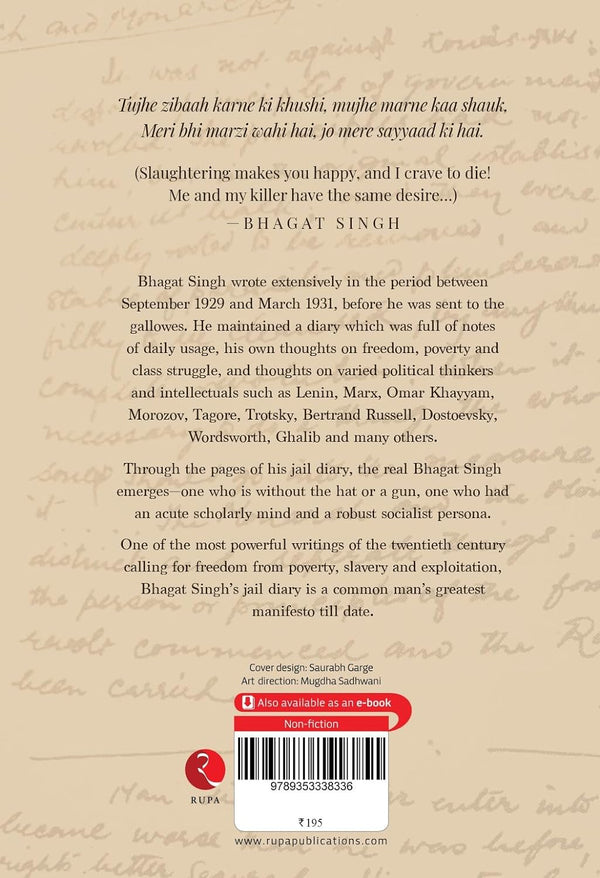 ch and Mor
It was not against Louis
Tujhe zibaah karne ki khushi, mujhe marne kaa shauk,
Meri bhi marzi wahi hai, jo mere sayyaad ki hai.
(Slaughtering makes you happy, and I crave to die!
Me and my killer have the same desire...)
—BHAGAT SINGH
Bhagat Singh wrote extensively in the period between
September 1929 and March 1931, before he was sent to the
gallowes. He maintained a diary which was full of notes
of daily usage, his own thoughts on freedom, poverty and
class struggle, and thoughts on varied political thinkers
and intellectuals such as Lenin, Marx, Omar Khayyam,
Morozov, Tagore, Trotsky, Bertrand Russell, Dostoevsky,
Wordsworth, Ghalib and many others.
Through the pages of his jail diary, the real Bhagat Singh
emerges—one who is without the hat or a gun, one who had
an acute scholarly mind and a robust socialist persona.
One of the most powerful writings of the twentieth century
calling for freedom from poverty, slavery and exploitation,
Bhagat Singh's jail diary is a common man's greatest
manifesto till date.
the person or principles of the
revolt commenced and the
been carried
Cover design: Saurabh Garge
Art direction: Mugdha Sadhwani
Also available as an e-book
Non-fiction
9789353338336
₹195
RUPA
www.rupapublications.com
Man enter into
became worse than he was before,
rights better